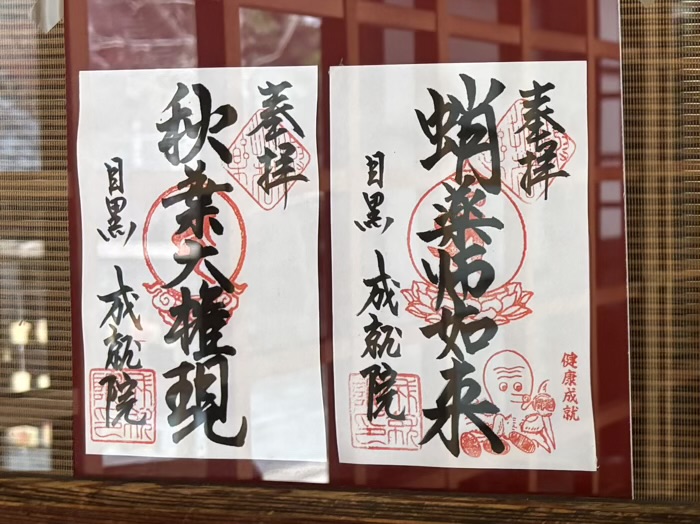 奉拝
蛸薬師如来
目黒 成就院
健康成就
奉拝
秋葉大権現
目黒 成就院